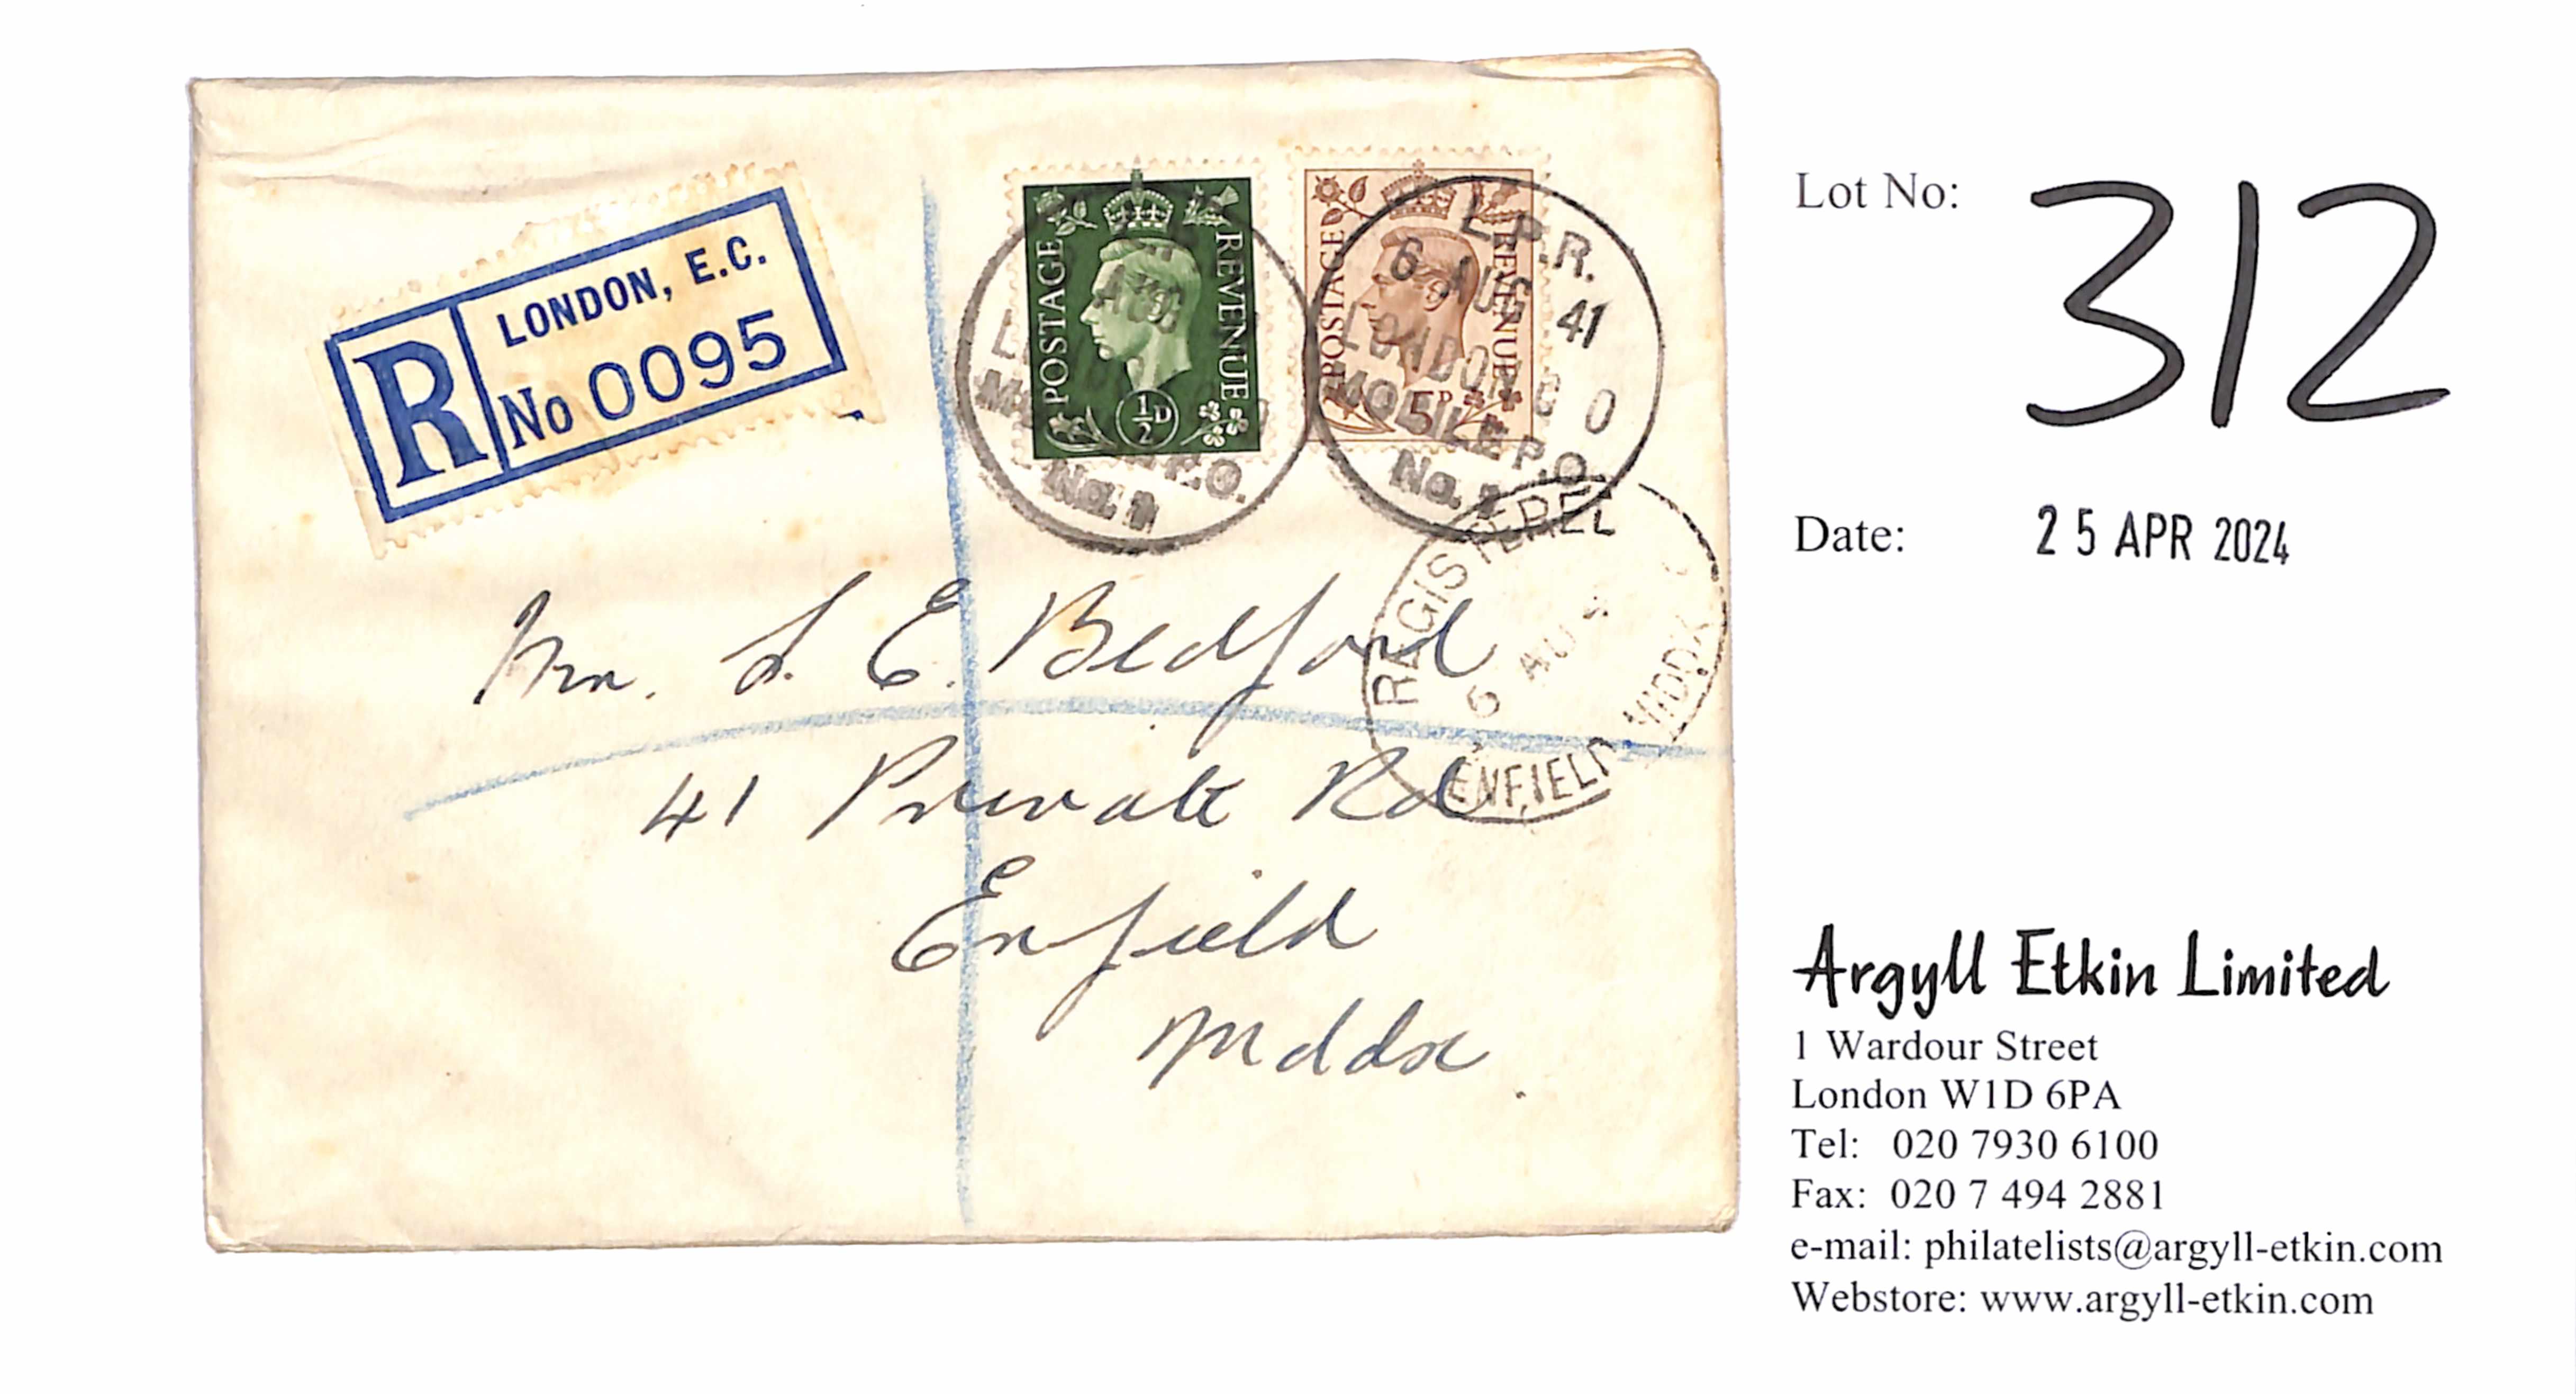 R
LONDON, E.C.
No 0095
POSTAGE
REVENUE
½D
P.O.
No. 1
POSTAGE
REVENUE
5D
L.P.R.
6 AUG 41
LONDON
MOBILE P.O.
No. 1
REGISTERED
6 AU
ENFIELD MIDDX
Mr. L. E. Bedford
41 Private Rd
Enfield
Mddx.
Lot No:
312
Date:
25 APR 2024
Argyll Etkin Limited
1 Wardour Street
London W1D 6PA
Tel: 020 7930 6100
Fax: 020 7 494 2881
e-mail: philatelists@argyll-etkin.com
Webstore: www.argyll-etkin.com